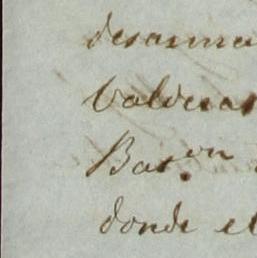 desarma
Valderas
Bat.on
donde el